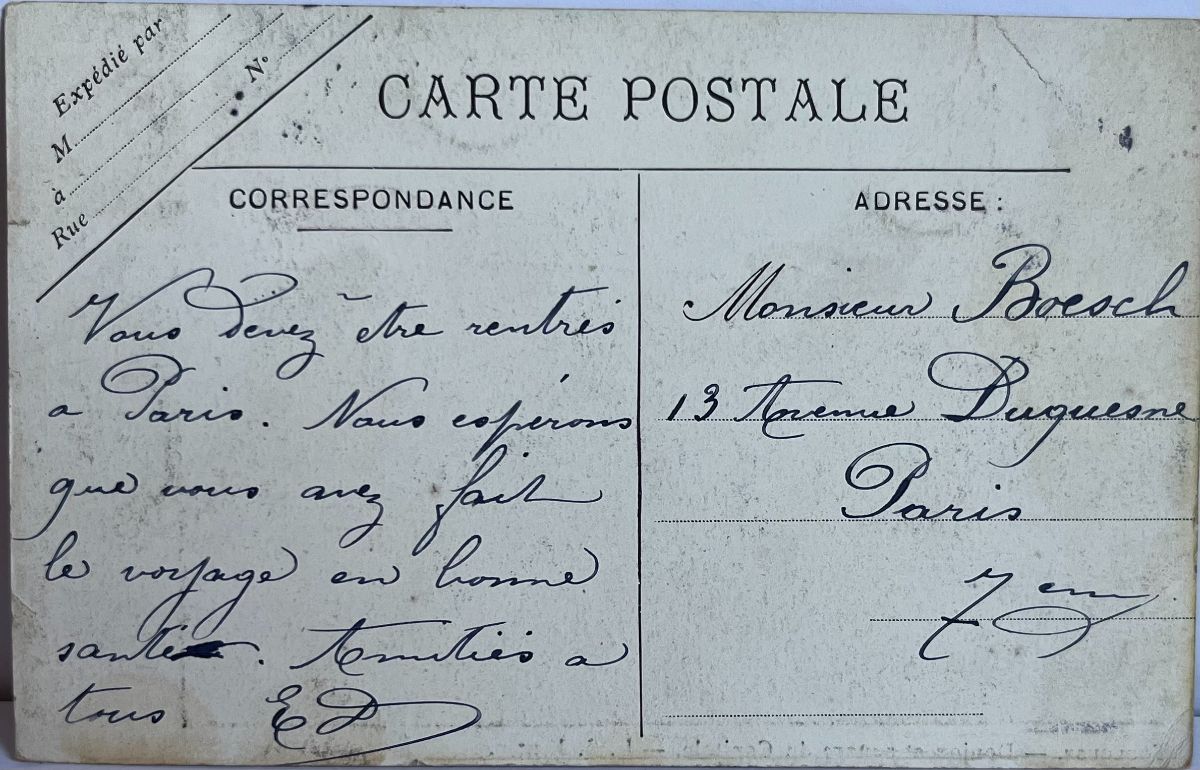 Expédié par
M
à
Rue N°
CARTE POSTALE
CORRESPONDANCE
Vous devez être rentrés
a Paris. Nous espérons
que vous avez fait
le voyage en bonne
santé. Amitiés a
tous ED
ADRESSE :
Monsieur Boesch
13 Avenue Duquesne
Paris
7em